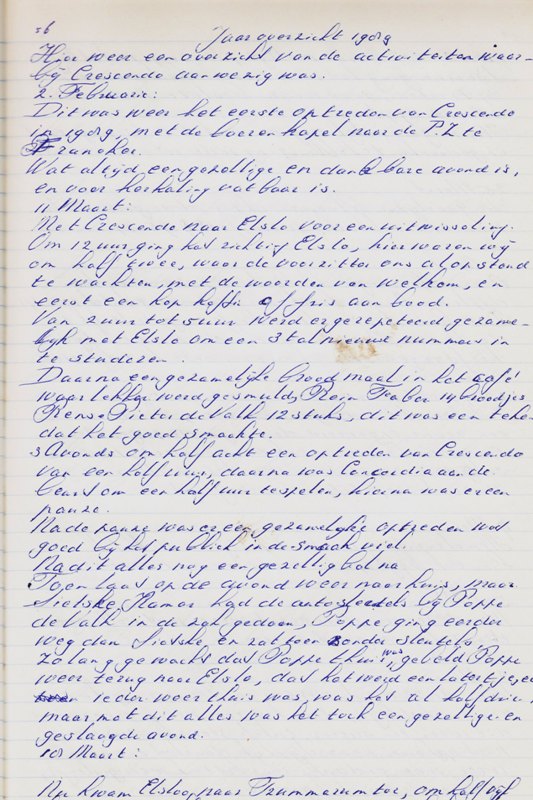 56
Jaaroverzicht 1989
Hier weer een overzicht van de activiteiten waar-
bij Crescendo aanwezig was.
2. Februarie:
Dit was weer het eerste optreden van Crescendo
in 1989, met de boeren kapel naar de P.Z te
Franeker.
Wat altijd een gezellige en dankbare avond is,
en voor herhaling vatbaar is.
11 Maart:
Met Crescendo naar Elslo voor een uitwisseling.
Om 12 uur ging het richting Elslo, hier waren wij
om half twee, waar de voorzitter ons al opstond
te wachten, met de woorden van welkom, en
eerst een kop koffie of fris aan bood.
Van 2 uur tot 5 uur werd er gerepeteerd gezame-
lijk met Elslo om een 3 tal nieuwe nummers in
te studeren.
Daarna een gezamelijke brood maal in het café
waar lekker werd gesmuld, Rein 14 broodjes
Rense Pieter de Valk 12 stuks, dit was een teken
dat het goed smaakte.
s Avonds om half acht een optreden van Crescendo
van een half uur, daarna was Concordia aan de
beurt om een half uur te spelen, hierna was er een
pauze.
Na de pauze was er een gezamelijke optreden wat
goed bij het publiek in de smaak viel.
Na dit alles nog een gezellig bal na
Toen laat op de avond weer naar huis, maar
Sietske Kramer had de autosleutels bij Poppe
de Valk in de zak gedaan, Poppe ging eerder
weg dan Sietske, en zat toen zonder sleutels.
Zo lang gewacht dat Poppe thuis was, gebeld Poppe
weer terug naar Elslo, dat het werd een latertje, eer
ieder weer thuis was, was het al half drie,
maar, met dit alles was het toch een gezellige en
geslaagde avond.
18 Maart:
Nu kwam Elsloo, naar Tzummarum toe, om half vijf